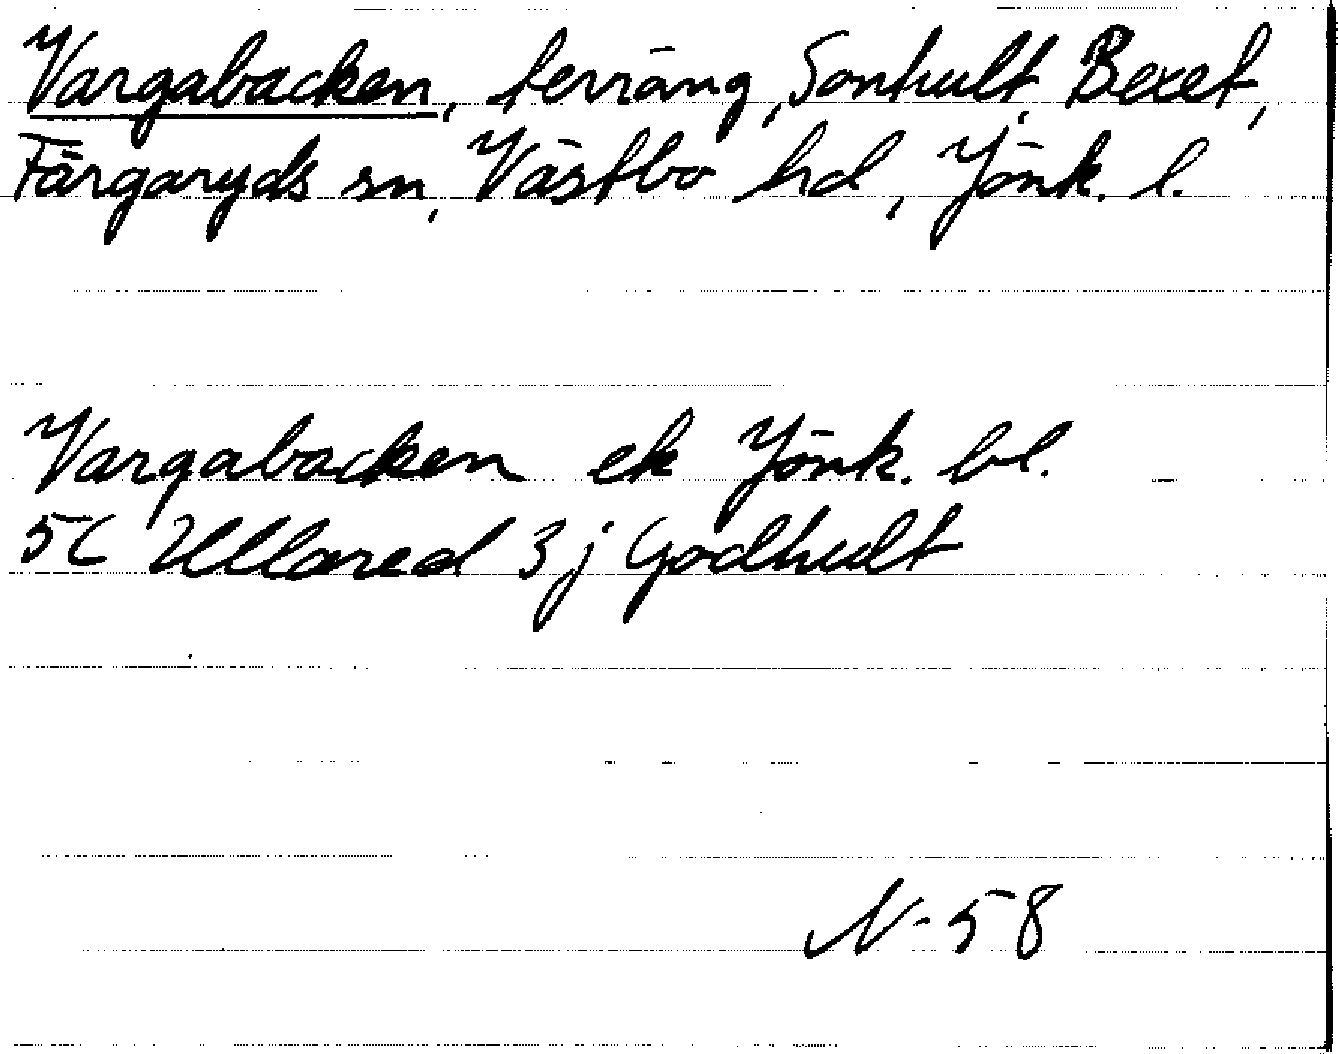 Vargabacken, terräng, Sonhult, Bexet,
Färgaryds sn, Västbo hd, Jönk. l.
Vargabacken ek Jönk. bl.
5C Ullared 3j Godhult
N-58